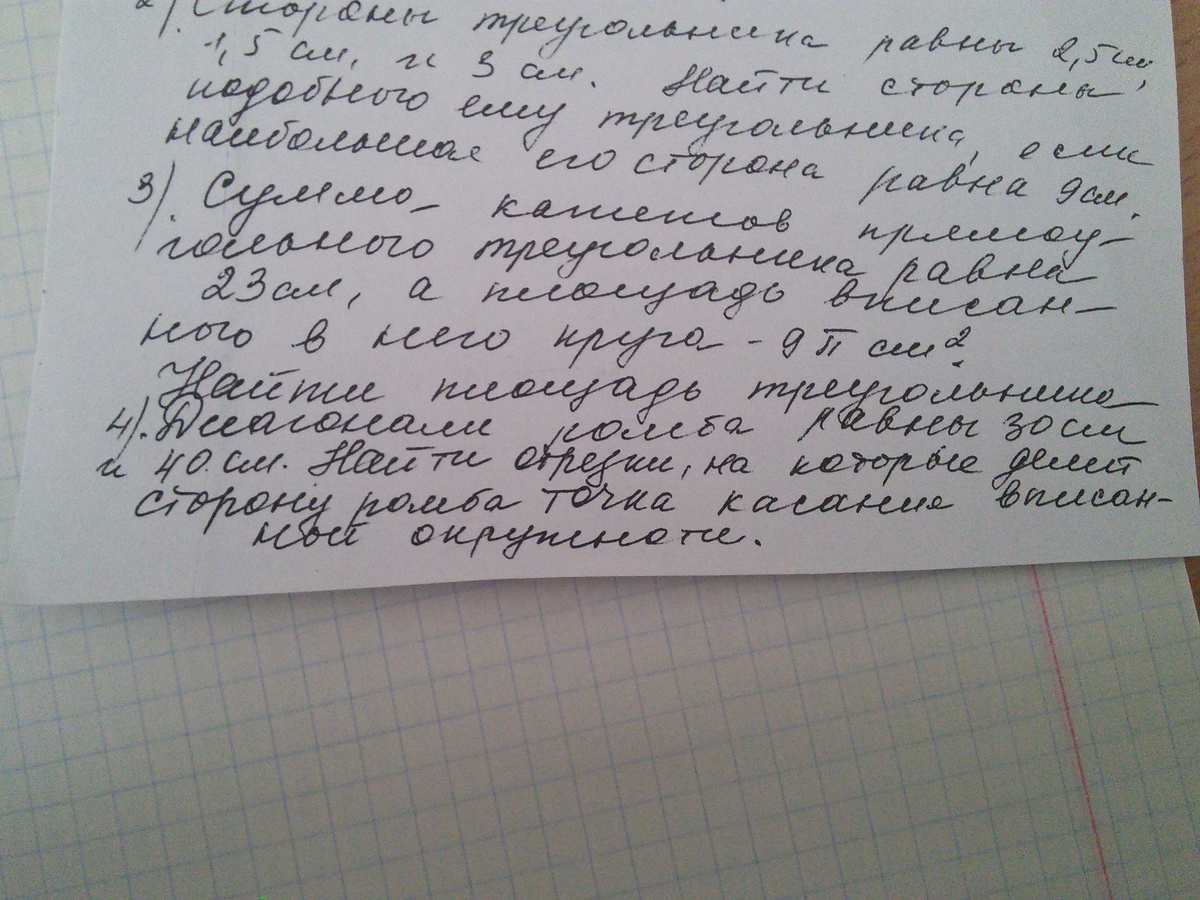 2). Стороны треугольника равны 2,5см,
1,5 см, и 3 см. Найти стороны
подобного ему треугольника, если
наибольшая его сторона равна 9см.
3). Сумма катетов прямоу-
гольного треугольника равна
23см, а площадь вписан-
ного в него круга - 9π см².
Найти площадь треугольника
4). Диагонали ромба равны 30см
и 40 см. Найти отрезки, на которые делит
сторону ромба точка касания вписан-
ной окружности.